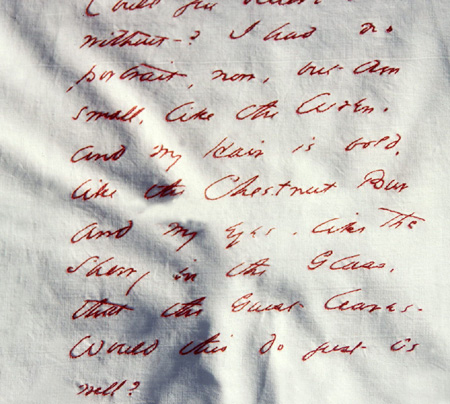 Could you believe
without-? I had no
portrait, now, but am
small, like the Wren,
and my Hair is bold,
like the Chestnut Bur
and my eyes, like the
Sherry in the Glass,
that the Guest leaves-
Would this do just as
well?